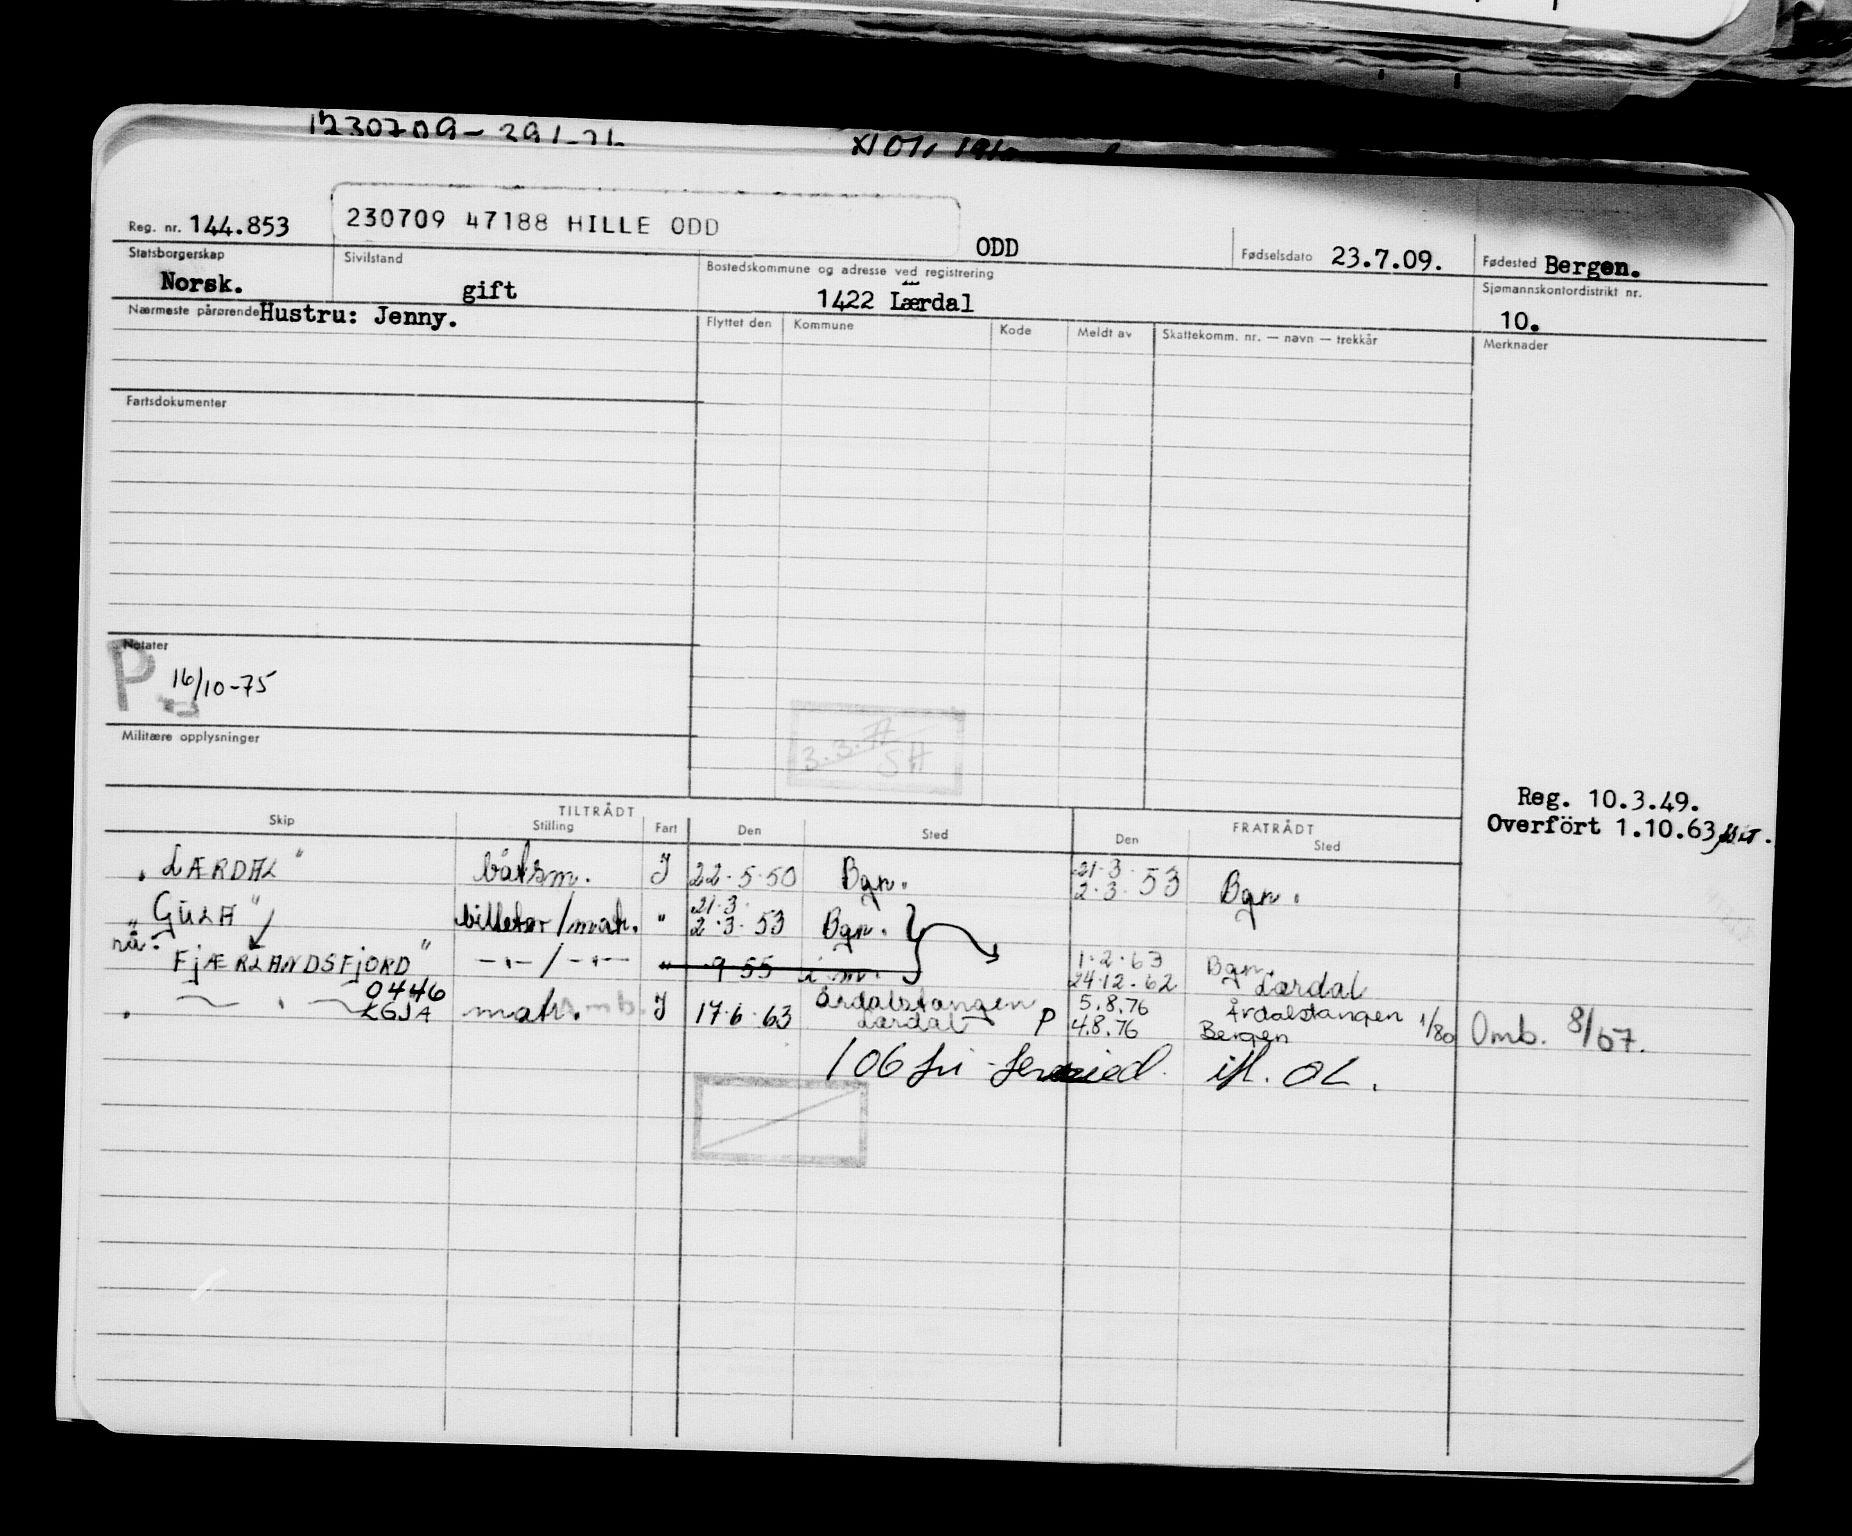 Reg. nr. 144.853 230709 47188 HILLE ODD ODD Fødselsdato 23.7.09. Fødested Bergen.
Statsborgerskap Norsk. Sivilstand gift Bostedskommune og adresse ved registrering 1422 Lærdal Sjømannskontordistrikt nr. 10.
Nærmeste pårørende Hustru: Jenny. Flyttet den Kommune Kode Meldt av Skattekomm. nr. — navn — trekkår Merknader
Fartsdokumenter
Notater
P 16/10-75
3.3.77
SH
Militære opplysninger
Reg. 10.3.49.
Overfört 1.10.63
TILTRÅDT FRATRÅDT
Skip Stilling Fart Den Sted Den Sted
"LÆRDAL" båtsm. J 22.5.50 Bgn. 21.3. 2.3.53 Bgn.
"GULA" billetør/matr. " 21.3. 2.3.53 Bgn.
nå: FJÆRLANDSFJORD" -"-/-"- " 9.55 i m. 1.2.63 Bgn.
24.12.62 Lærdal
0446 Årdalstangen 5.8.76 Årdalstangen
LGJA matr. J 17.6.63 Lærdal P 4.8.76 Bergen 1/80 Omb. 8/67.
106 fri ifl. OL.